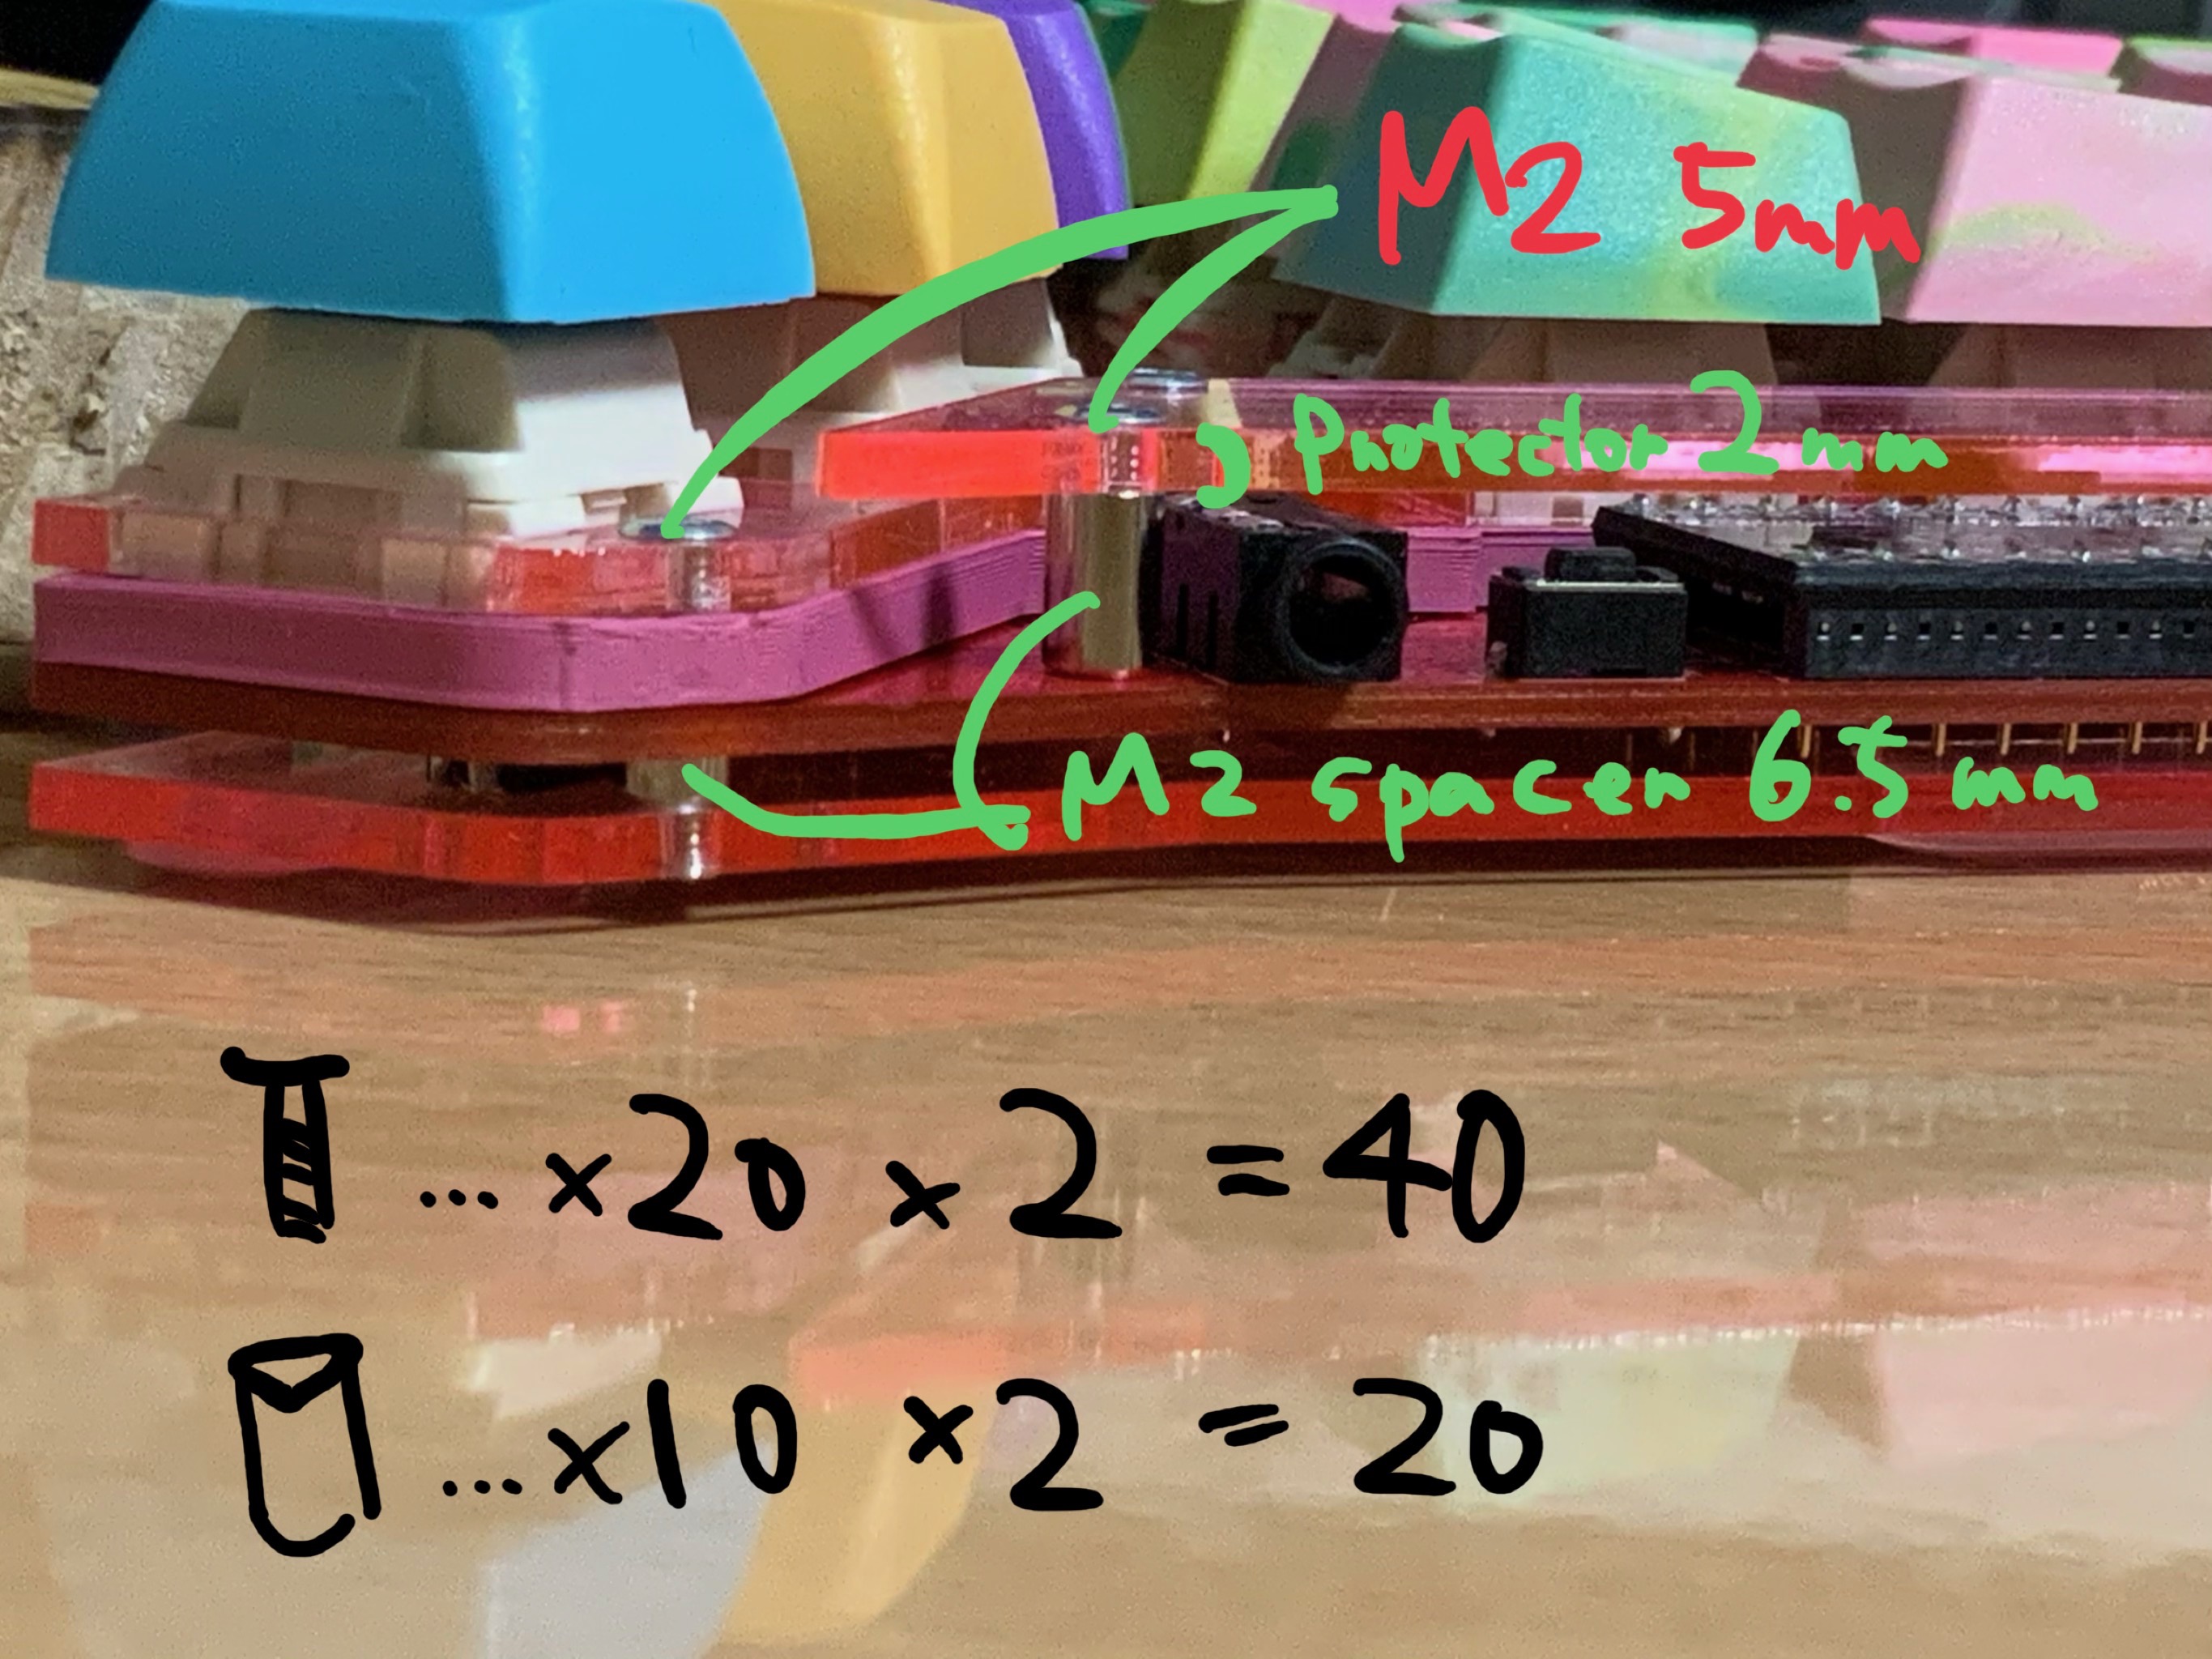 M2 5mm
Protector 2mm
M2 spacer 6.5mm
... ×20 ×2 = 40
... ×10 ×2 = 20